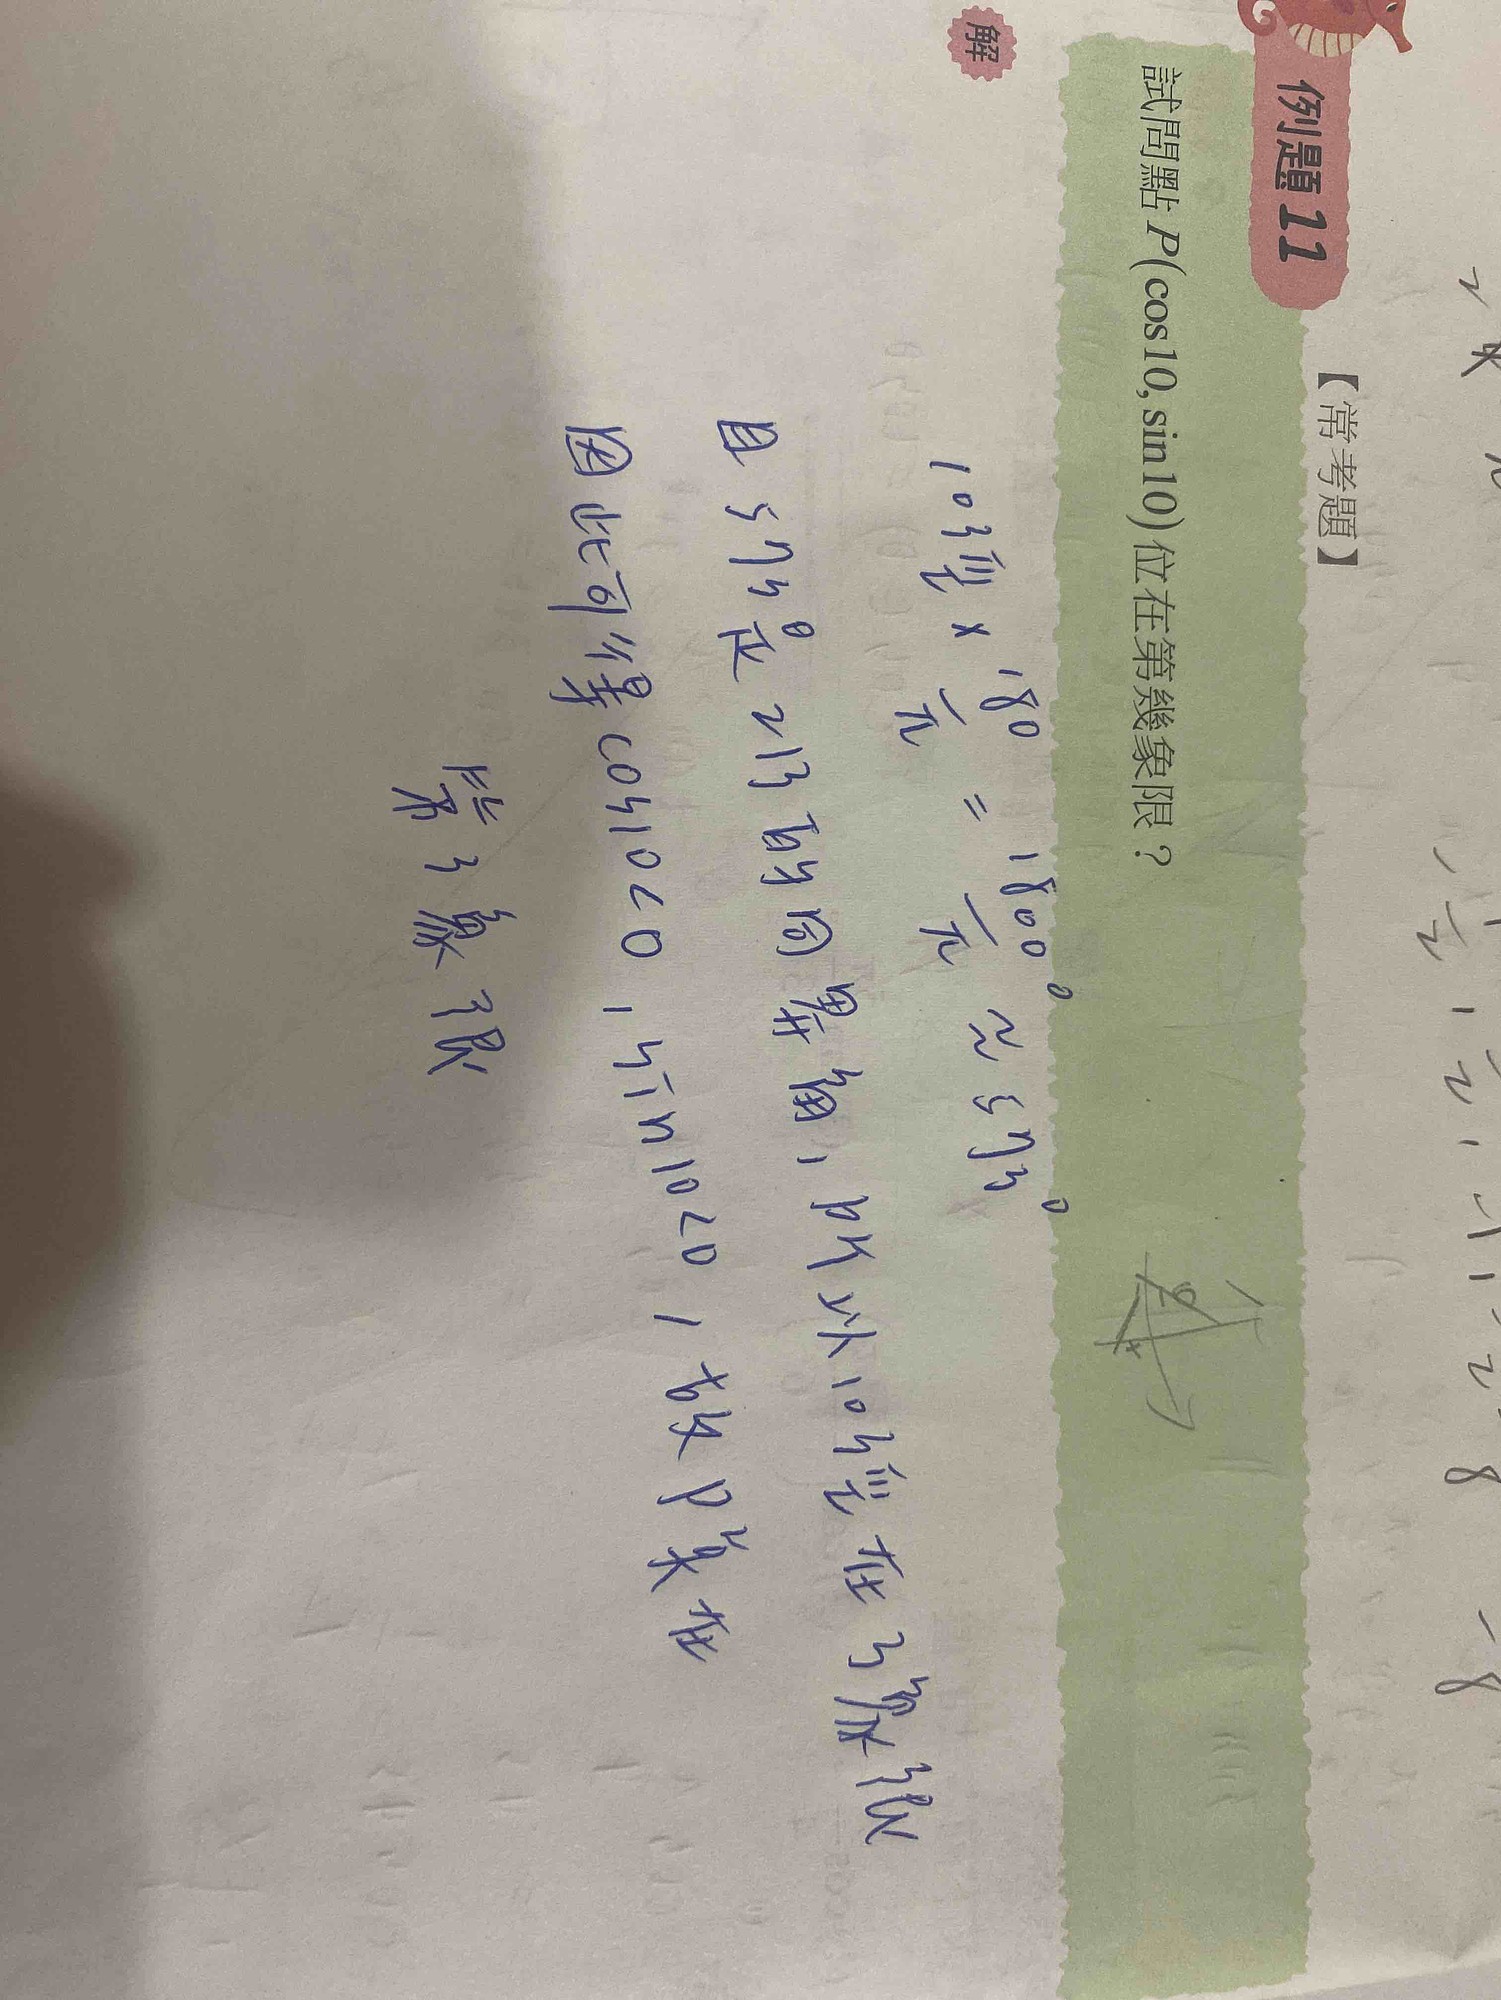 例題 11
【常考題】
試問點 P(cos10, sin10) 位在第幾象限？
解
10弳 × 180/π = 1800°/π ≈ 573°
且 573° 是 213 的同界角，所以10弳在3象限
因此可得 cos10<0，sin10<0，故P點在
第3象限